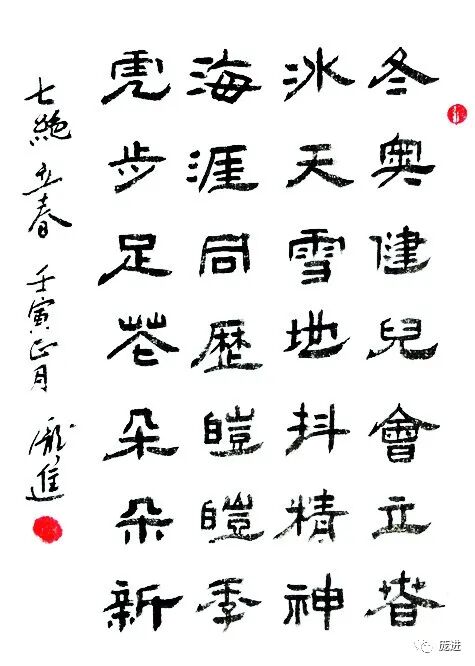 冬奥健兒會立春
冰天雪地抖精神
海涯同歴皚皚季
虎步足花朵朵新
七絶 立春 壬寅正月 龐進
庞进